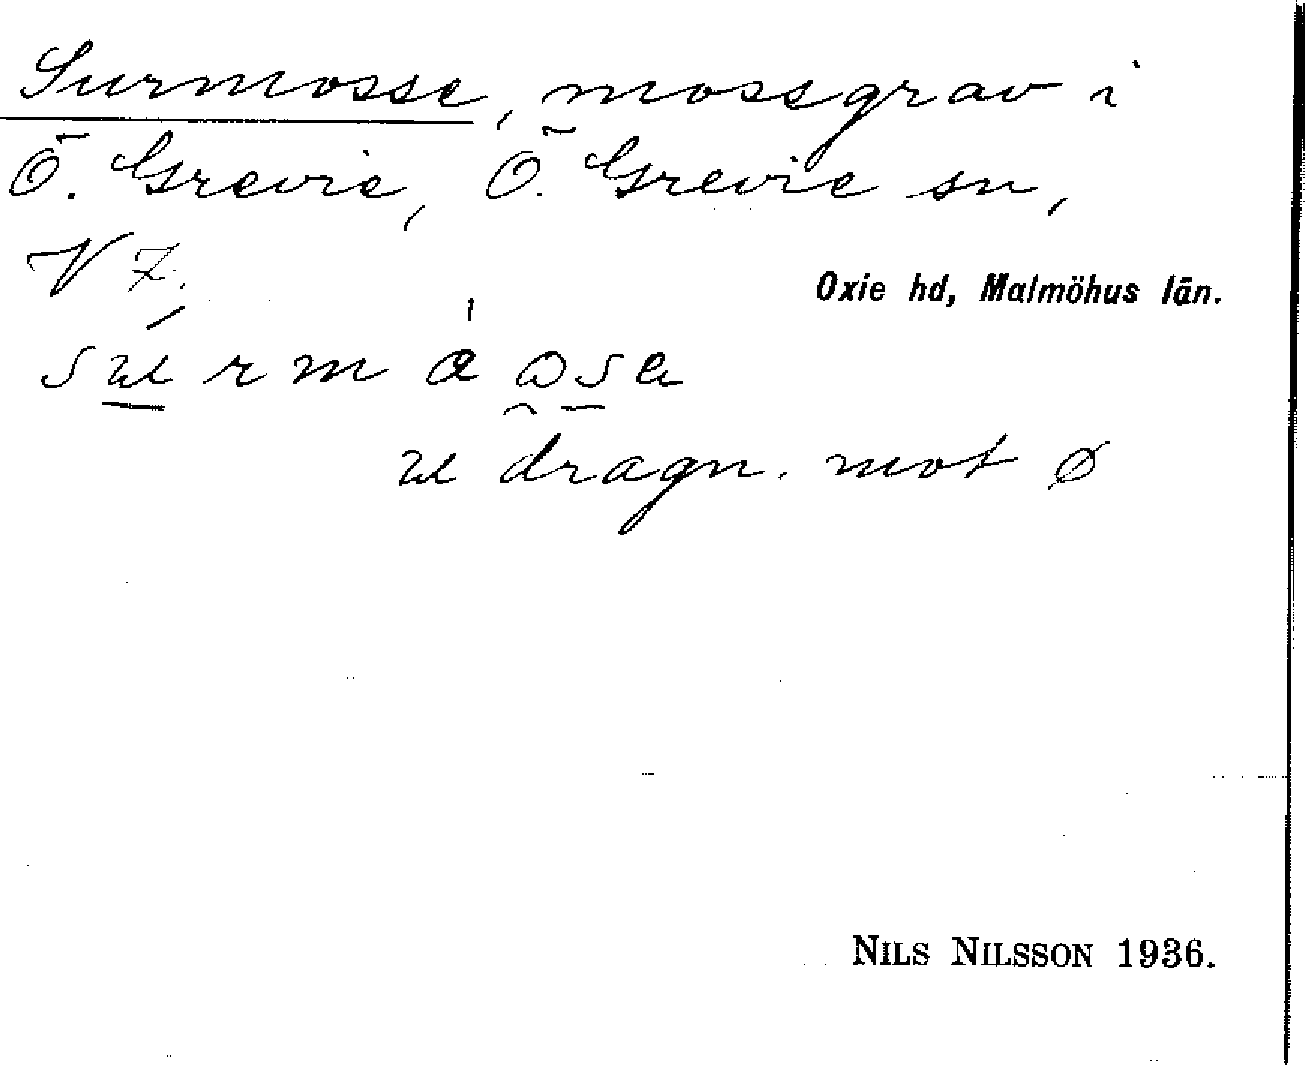 Surmosse, mossgrav i
Ö. Grevie, Ö. Grevie sn,
V 7.
Oxie hd, Malmöhus län.
dragn. mot ø
NILS NILSSON 1936.